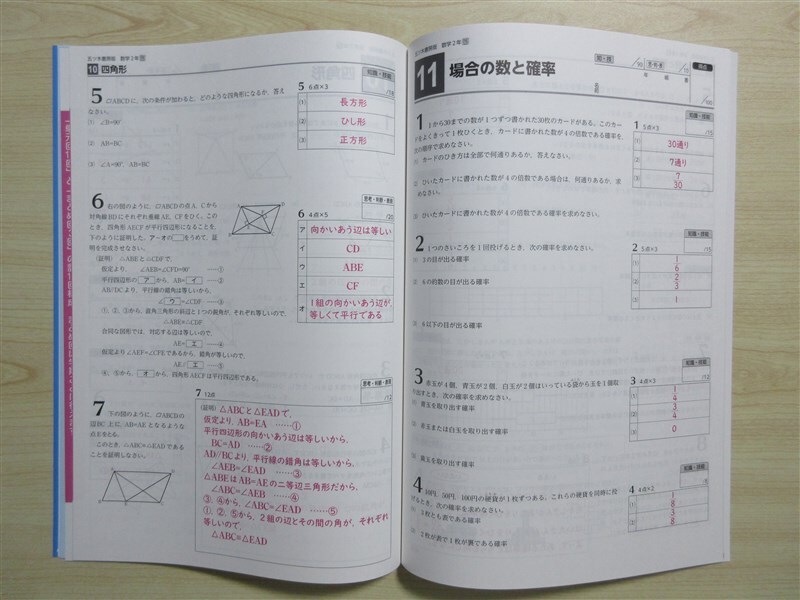 数学2年
10 四角形
知識・技能
5 ▱ABCDに、次の条件が加わると、どのような四角形になるか、答え
なさい。
(1) ∠B=90°
(2) AB=BC
(3) ∠A=90°, AB=BC
5 6点×3
(1) 長方形
(2) ひし形
(3) 正方形
思考・判断・表現
6 右の図のように、▱ABCDの点A、Cから
対角線BDにそれぞれ垂線AE、CFをひく。この
とき、四角形AECFが平行四辺形になることを、
下のように証明した。ア〜オの□をうめて、証
明を完成させなさい。
(証明) △ABEと△CDFで、
仮定より、∠AEB=∠CFD=90° ……①
平行四辺形の ア から、AB= イ ……②
AB//DCより、平行線の錯角は等しいから、
∠ ウ =∠CDF ……③
①、②、③から、直角三角形の斜辺と1つの鋭角が、それぞれ等しいので、
△ABE≡△CDF
合同な図形では、対応する辺は等しいので、
AE= エ ……④
仮定より∠AEF=∠CFEであるから、錯角が等しいので、
AE// エ ……⑤
④、⑤から、 オ から、四角形AECFは平行四辺形である。
6 4点×5
/20
ア 向かいあう辺は等しい
イ CD
ウ ABE
エ CF
オ 1組の向かいあう辺が、
等しくて平行である
思考・判断・表現
7 下の図のように、▱ABCDの
辺BC上に、AB=AEとなるような
点Eをとる。
このとき、△ABC≡△EADであ
ることを証明しなさい。
7 12点
/12
(証明) △ABCと△EADで、
仮定より、AB=EA ……①
平行四辺形の向かいあう辺は等しいから、
BC=AD ……②
AD//BCより、平行線の錯角は等しいから、
∠AEB=∠EAD ……③
△ABEはAB=AEの二等辺三角形だから、
∠ABC=∠AEB ……④
③、④から、∠ABC=∠EAD ……⑤
①、②、⑤から、2組の辺とその間の角が、それぞれ
等しいので、
△ABC≡△EAD
数学2年
11 場合の数と確率
得点
年 組 番
名前
/100
知識・技能
1 1から30までの数が1つずつ書かれた30枚のカードがある。このカー
ドをよくきって1枚ひくとき、カードに書かれた数が4の倍数である確率を、
次の順序で求めなさい。
(1) カードのひき方は全部で何通りあるか、答えなさい。
(2) ひいたカードに書かれた数が4の倍数である場合は、何通りあるか、求
めなさい。
(3) ひいたカードに書かれた数が4の倍数である確率を求めなさい。
1 5点×3
/15
(1) 30通り
(2) 7通り
(3) 7
30
知識・技能
2 1つのさいころを1回投げるとき、次の確率を求めなさい。
(1) 3の目が出る確率
(2) 6の約数の目が出る確率
(3) 6以下の目が出る確率
2 5点×3
/15
(1) 1
6
(2) 2
3
(3) 1
知識・技能
3 赤玉が1個、青玉が2個、白玉が2個はいっている袋から玉を1個取
り出すとき、次の確率を求めなさい。
玉を取り出す確率
(2) 赤玉または白玉を取り出す確率
(3) 黄玉を取り出す確率
3 4点×3
/12
(1) 1
4
(2) 3
4
(3) 0
知識・技能
4 10円、50円、100円の硬貨が1枚ずつある。これらの硬貨を同時に投
げるとき、次の確率を求めなさい。
(1) 3枚とも表である確率
(2) 2枚が表で1枚が裏である確率
4 4点×2
(1) 1
8
(2) 3
8